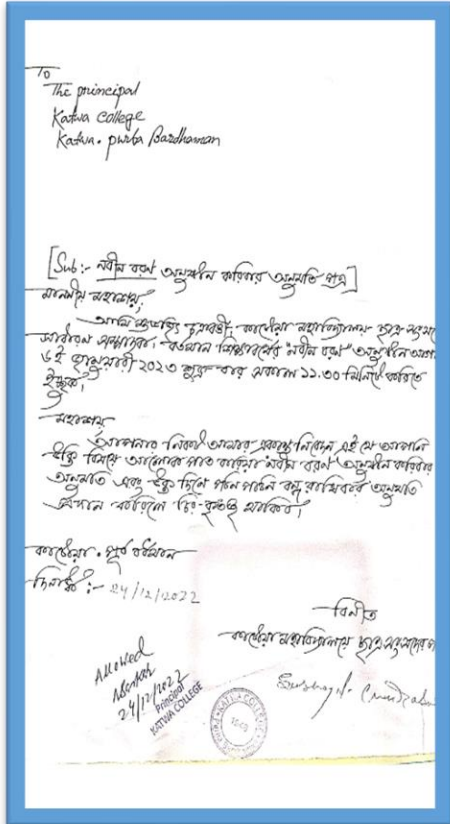 To
The principal
Katwa College
Katwa. purba Bardhaman
[Sub:- নবীন বরণ অনুষ্ঠান করিবার অনুমতি পত্র]
মাননীয় মহাশয়,
আমি চক্রবর্তী, কাটোয়া মহাবিদ্যালয় ছাত্র
সাধারণ সম্পাদক। বর্তমান শিক্ষাবর্ষের "নবীন বরণ" অনুষ্ঠান
৬ই জানুয়ারী ২০২৩ শুক্র বার সকাল ১১.৩০ মিনিটে করিতে
ইচ্ছুক।
মহাশয়
আপনার নিকট আমার একান্ত নিবেদন এই যে আপনি
উক্ত বিষয়ে আলোক পাত করিয়া নবীন বরণ অনুষ্ঠান করিবার
অনুমতি এবং উক্ত দিনে পঠন পাঠন বন্ধ রাখিবার অনুমতি
প্রদান করিলে চির-কৃতজ্ঞ থাকিব।
কাটোয়া. পূর্ব বর্ধমান
দিনাঙ্ক:- 24/12/2022
বিনীত
কাটোয়া মহাবিদ্যালয় ছাত্র
Allowed
24/12/2022
Principal
KATWA COLLEGE
KATWA COLLEGE